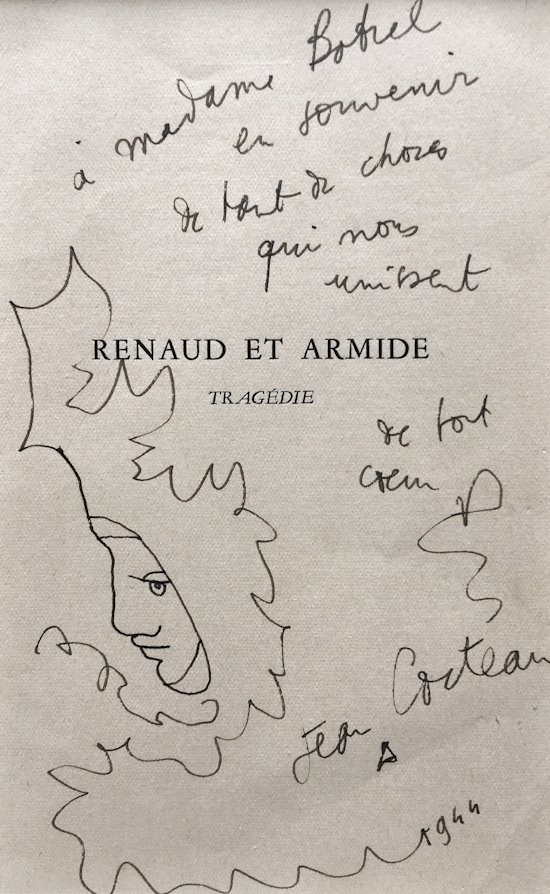 à madame Botrel
en souvenir
de tant de choses
qui nous
unissent
RENAUD ET ARMIDE
TRAGÉDIE
de tout
cœur
Jean Cocteau
1944